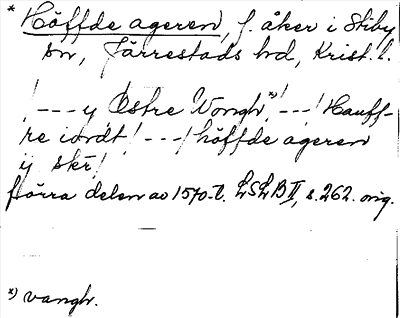 * Höffde ageren, f. åker i Stiby
sn, Järrestads hd, Krist. l.
/---y Østre Wongh*)/---/ Hauff-
re iordt/---/ höffde ageren
ij skr̄/
förra delen av 1570-t. LSLB II, s. 262. orig.
*) vangh.